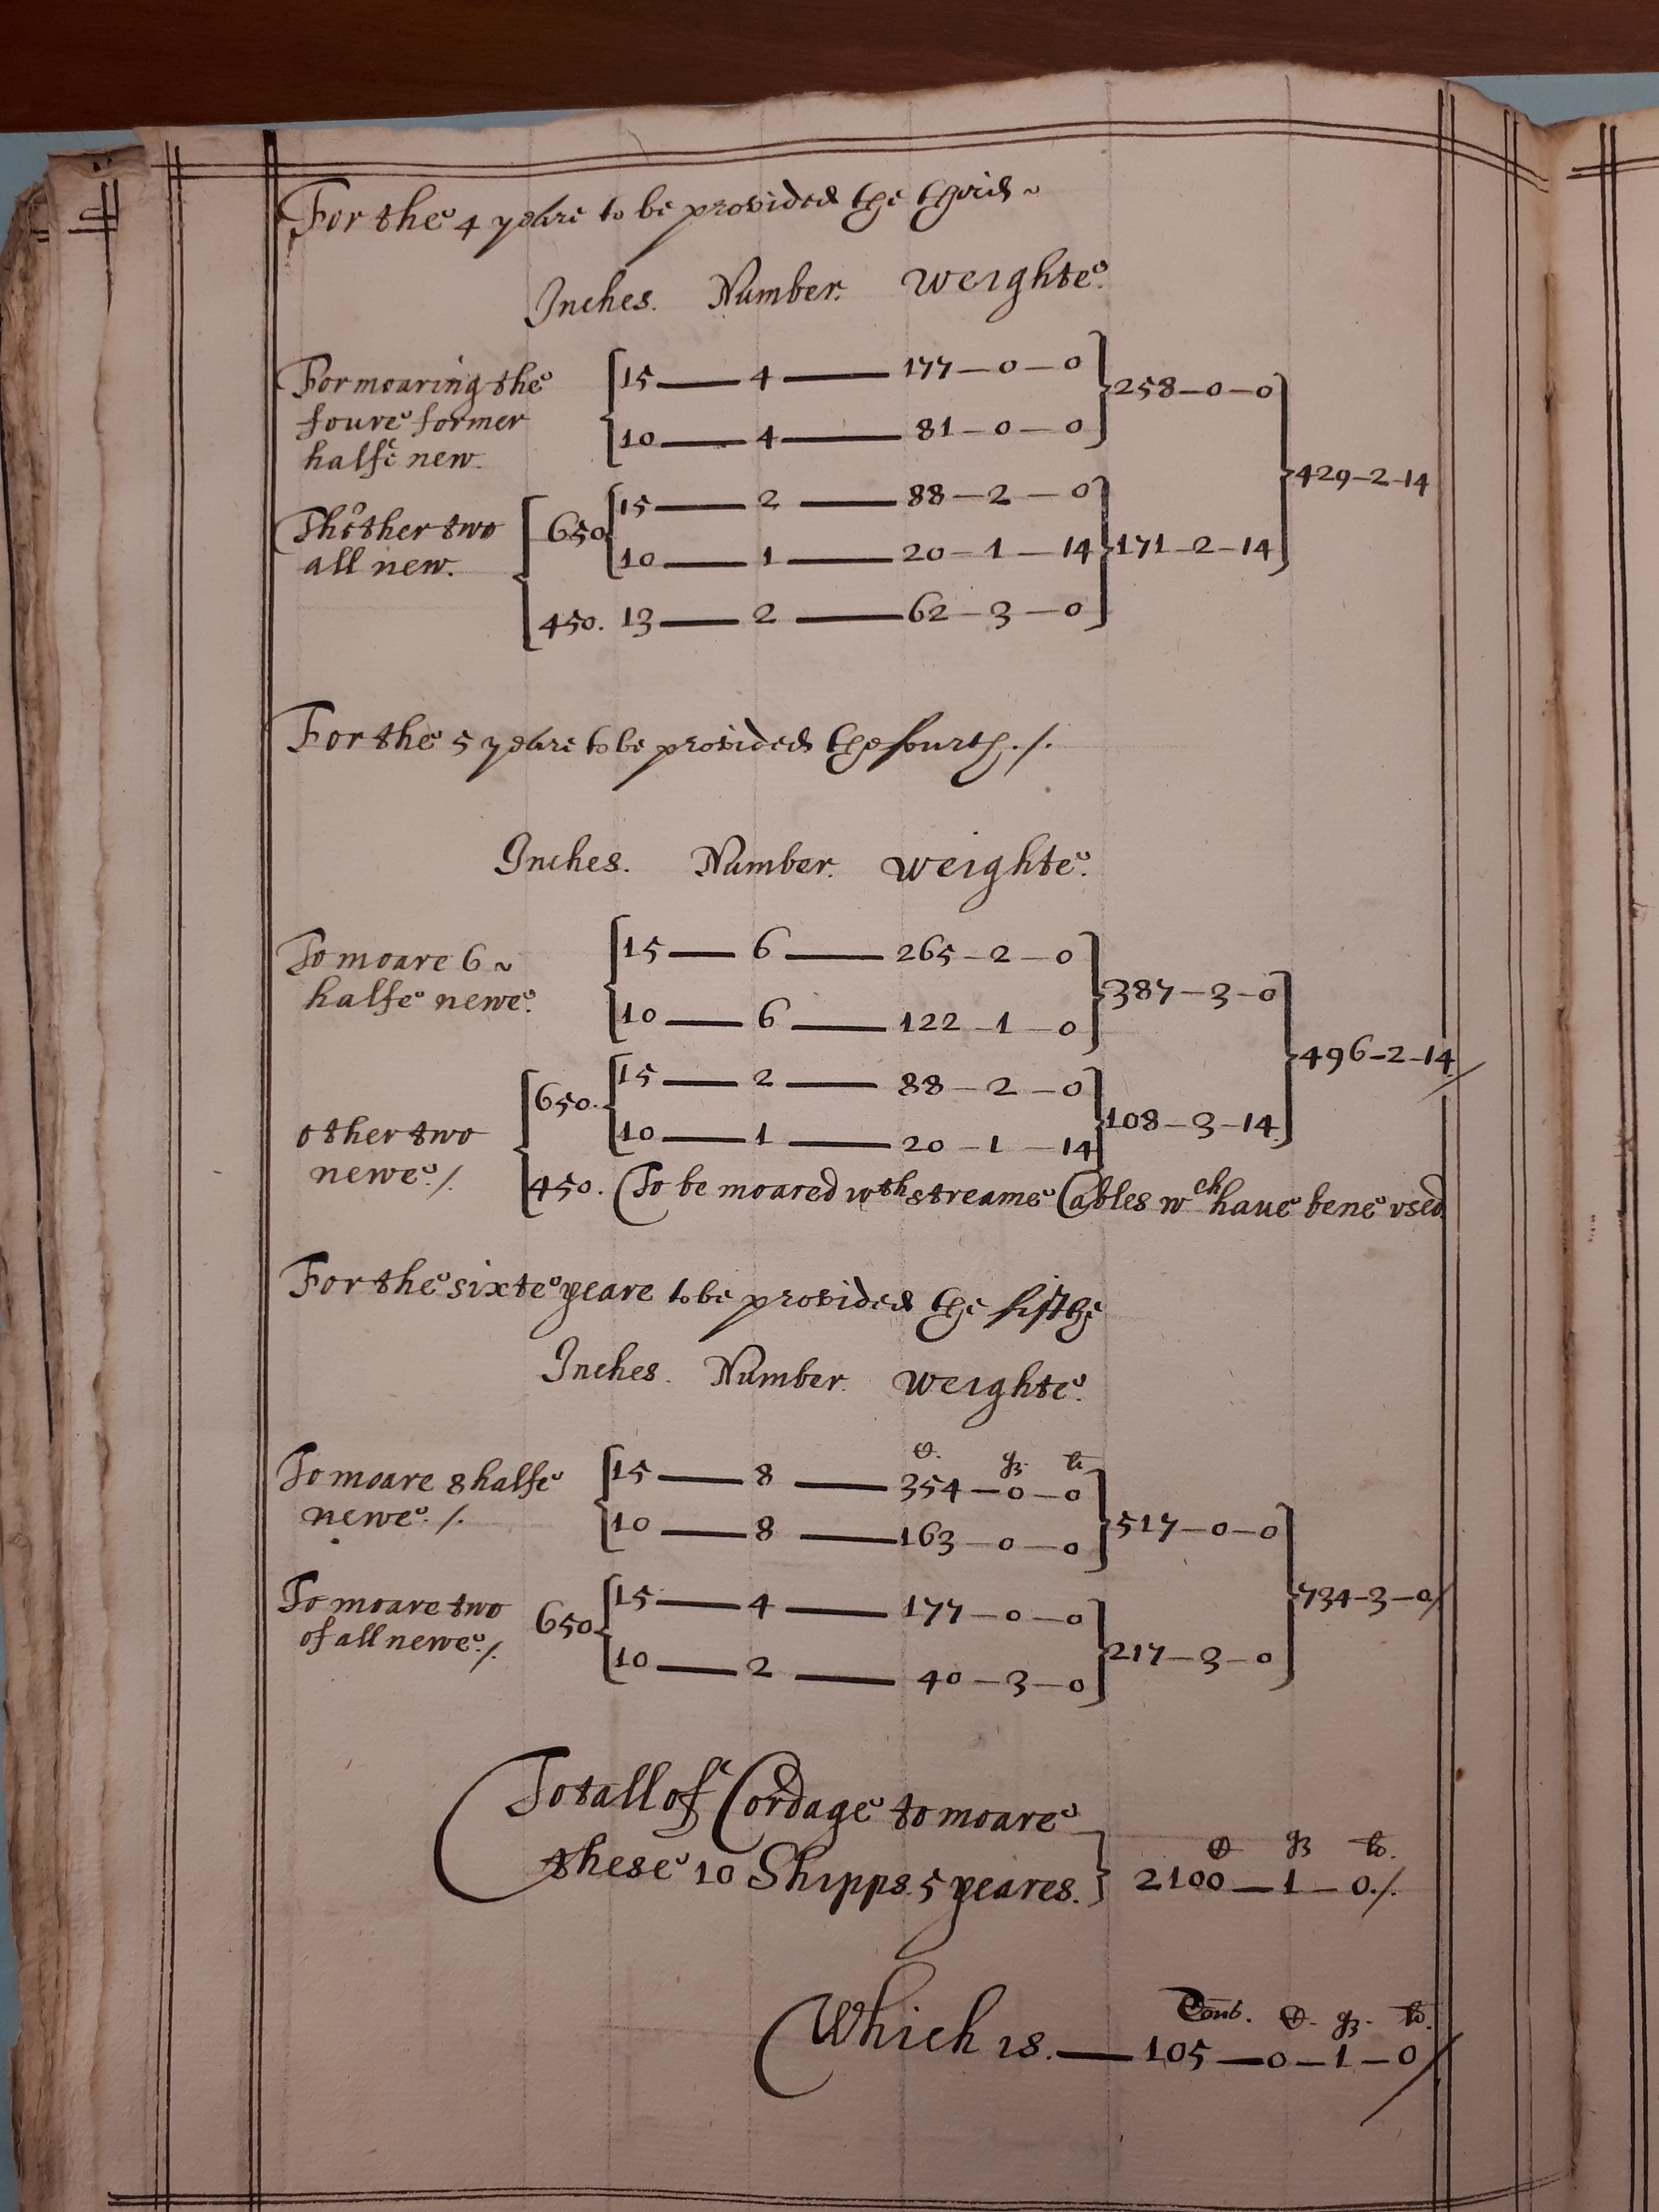 For the 4 yeare to be provided the third~
Inches. Number. Weighte.
For moaring the
foure former
halfe new.
15 — 4 — 177 — 0 — 0
10 — 4 — 81 — 0 — 0
258 — 0 — 0
Thother two
all new.
650
15 — 2 — 88 — 2 — 0
10 — 1 — 20 — 1 — 14
450. 13 — 2 — 62 — 3 — 0
171 — 2 — 14
429 — 2 — 14
For the 5 yeare to be provided the fourth ./.
Inches. Number. Weighte.
To moare 6 ~
halfe newe.
15 — 6 — 265 — 2 — 0
10 — 6 — 122 — 1 — 0
387 — 3 — 0
other two
newe ./.
650.
15 — 2 — 88 — 2 — 0
10 — 1 — 20 — 1 — 14
108 — 3 — 14
496 — 2 — 14
450. To be moared wth streame Cables wch haue bene vsed
For the sixte yeare to be provided the fifthe
Inches. Number. Weighte.
C. qz. lb
To moare 8 halfe
newe ./.
15 — 8 — 354 — 0 — 0
10 — 8 — 163 — 0 — 0
517 — 0 — 0
To moare two
of all newe ./.
650
15 — 4 — 177 — 0 — 0
10 — 2 — 40 — 3 — 0
217 — 3 — 0
734 — 3 — 0/
Totall of Cordage to moare
these 10 Shipps 5 yeares.
C qz lb.
2100 — 1 — 0 ./.
Tons. C. qz. lb.
Which is. — 105 — 0 — 1 — 0/